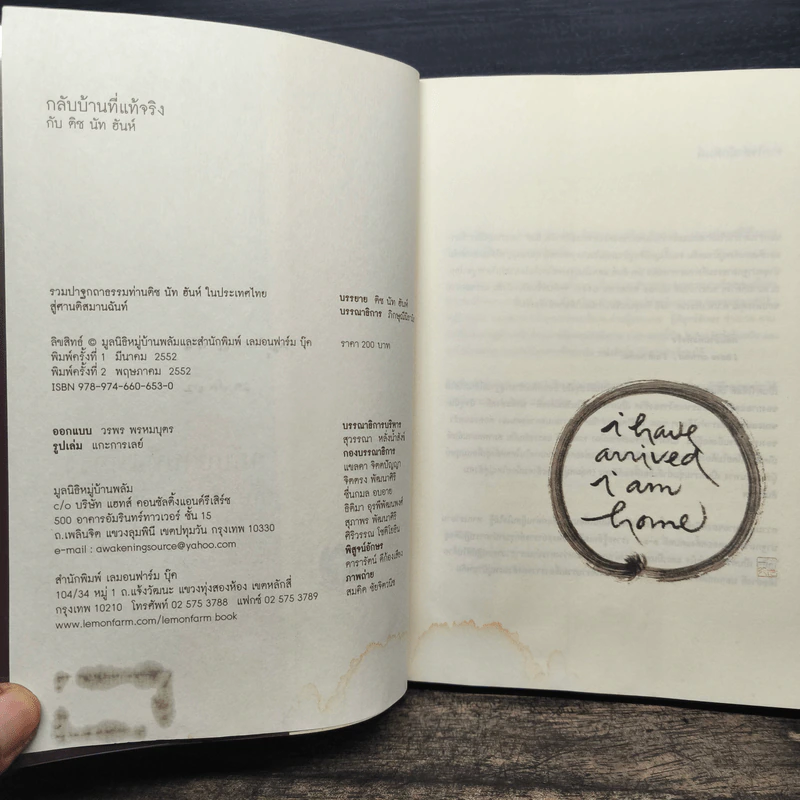 กลับบ้านที่แท้จริง
กับ ติช นัท ฮันห์
รวมปาฐกถาธรรมท่านติช นัท ฮันห์ ในประเทศไทย
สู่ศานติสมานฉันท์
ลิขสิทธ์ © มูลนิธิหมู่บ้านพลัมและสำนักพิมพ์ เลมอนฟาร์ม บุ๊ค
พิมพ์ครั้งที่ 1 มีนาคม 2552
พิมพ์ครั้งที่ 2 พฤษภาคม 2552
ISBN 978-974-660-653-0
ออกแบบ วรพร พรหมบุตร
รูปเล่ม แกะการเลย์
มูลนิธิหมู่บ้านพลัม
c/o บริษัท แฮทส์ คอนซัลติ้งแอนด์รีเสิร์ซ
500 อาคารอัมรินทร์ทาวเวอร์ ชั้น 15
ถ.เพลินจิต แขวงลุมพินี เขตปทุมวัน กรุงเทพ 10330
e-mail : awakeningsource@yahoo.com
สำนักพิมพ์ เลมอนฟาร์ม บุ๊ค
104/34 หมู่ 1 ถ.แจ้งวัฒนะ แขวงทุ่งสองห้อง เขตหลักสี่
กรุงเทพ 10210 โทรศัพท์ 02 575 3788 แฟกซ์ 02 575 3789
www.lemonfarm.com/lemonfarm book
บรรยาย ติช นัท ฮันห์
บรรณาธิการ
ราคา 200 บาท
บรรณาธิการบริหาร
สุวรรณา หลั่งน้ำสังข์
กองบรรณาธิการ
แขลดา จิตตปัญญา
จิตตรง พัฒนาศิริ
ชื่นกมล อบอาย
ธิติมา อุรพีพัฒนพงศ์
สุภาพร พัฒนาศิริ
ศิริวรรณ โชติโยธิน
พิสูจน์อักษร
ดารารัตน์ ดีก้องเสียง
ภาพถ่าย
สมคิด ชัยจิตวนิช
i have
arrived
i am
home